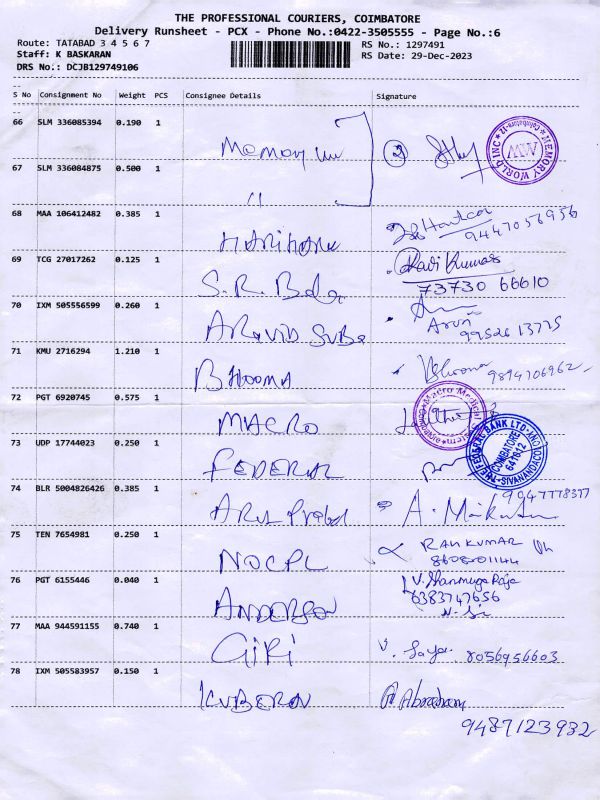 THE PROFESSIONAL COURIERS, COIMBATORE
Delivery Runsheet - PCX - Phone No.:0422-3505555 - Page No.:6
Route: TATABAD 3 4 5 6 7 RS No.: 1297491
Staff: K BASKARAN RS Date: 29-Dec-2023
DRS No.: DCJB129749106
S No Consignment No Weight PCS Consignee Details Signature
66 SLM 336085394 0.190 1
MEMORY WORLD INC Coimbatore-12 MW
67 SLM 336084875 0.500 1
"
68 MAA 106412482 0.385 1
HARIHARA 9447056956
69 TCG 27017262 0.125 1 Ravi Kumar
S.R. Bala 73730 66610
70 IXM 505556599 0.260 1
ARAVID SUBA Arun 99526 13775
71 KMU 2716294 1.210 1
BHOOMA 9894706962
72 PGT 6920745 0.575 1
MACRO Macro Medical Systems
73 UDP 17744023 0.250 1
FEDERAL THE FEDERAL BANK LTD COIMBATORE 641012 SIVANANDACOLONY
74 BLR 5004826426 0.385 1 9047778377
Arul Prabd A.
75 TEN 7654981 0.250 1 RAJKUMAR
NOCPL
76 PGT 6155446 0.040 1 V. Shanmuga Raja
ANDERSON 6383747656
77 MAA 944591155 0.740 1
GIRI V. 8056956603
78 IXM 505583957 0.150 1
KUBERAN Abraham
9487123932